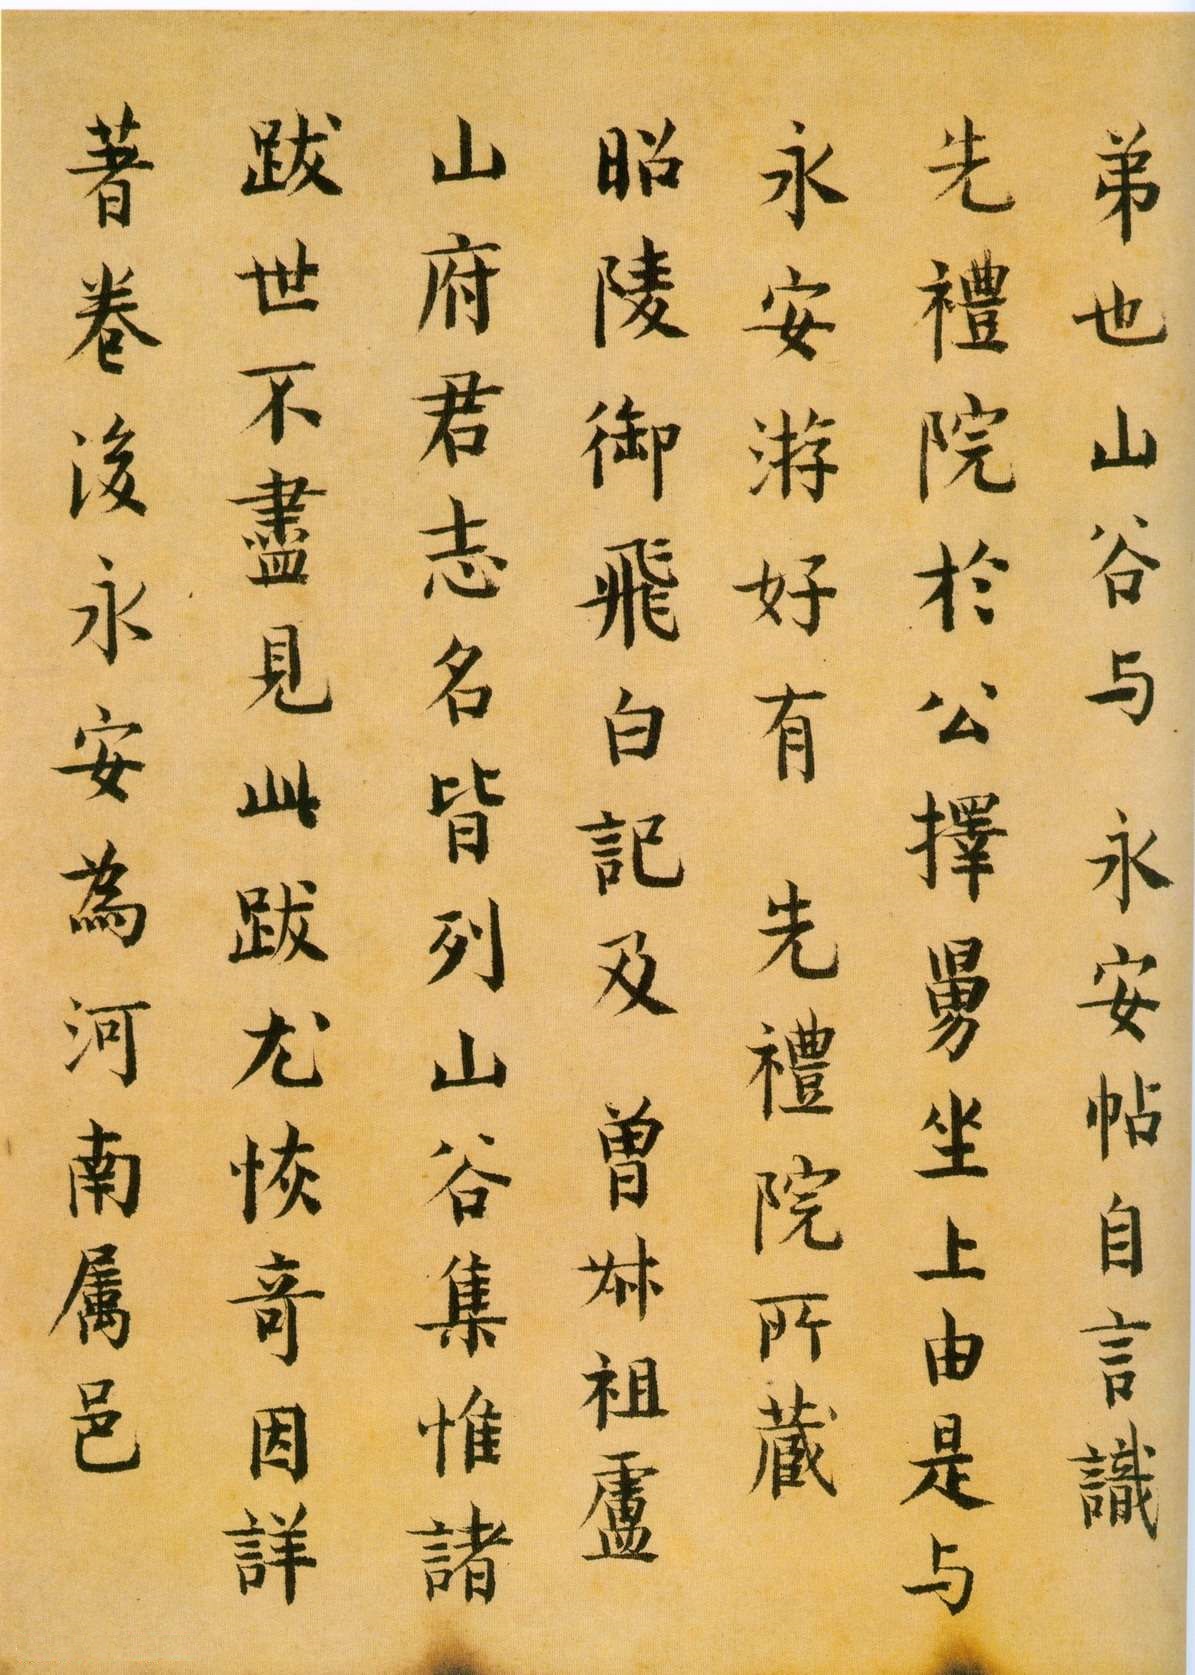 弟也山谷与 永安帖自言識
先禮院於公擇舅坐上由是与
永安游好有 先禮院所蔵
昭陵御飛白記及 曾叔祖盧
山府君志名皆列山谷集惟諸
跋世不盡見此跋尤恢奇因詳
著卷後永安為河南属邑